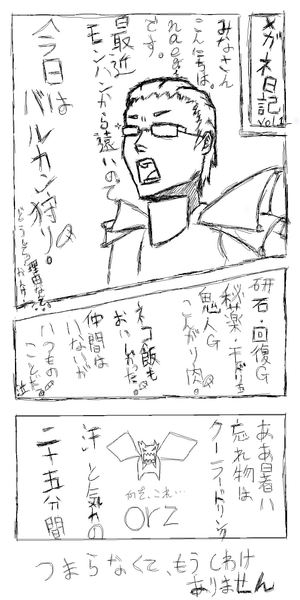 メガネ日記
vol.1
みなさん
こんにちは。
naegi
です。
最近
モンハンから遠いので
今日は
バルカン狩り。
研石・回復G
秘薬・千里
鬼人G
こんがり肉。
ネコ飯も
おいしかった。
仲間は
いないが
いつもの
ことだ。
ああ暑い
忘れ物は
クーラードリンク
orz
汗と気れの
二十五分間
つまらなくて、もうしわけ
ありません